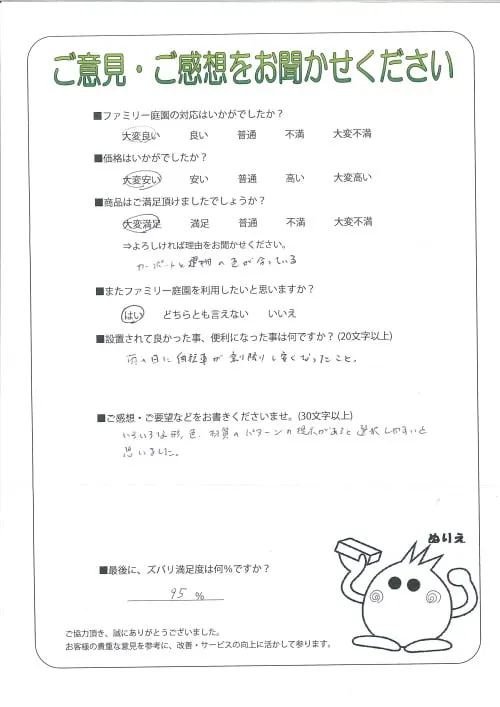 ご意見・ご感想をお聞かせください
■ファミリー庭園の対応はいかがでしたか？
大変良い 良い 普通 不満 大変不満
■価格はいかがでしたか？
大変安い 安い 普通 高い 大変高い
■商品はご満足頂けましたでしょうか？
大変満足 満足 普通 不満 大変不満
⇒よろしければ理由をお聞かせください。
カーポートと建物の色が合っている
■またファミリー庭園を利用したいと思いますか？
はい どちらとも言えない いいえ
■設置されて良かった事、便利になった事は何ですか？(20文字以上)
雨の日に自転車が乗り降りし安くなったこと。
■ご感想・ご要望などをお書きくださいませ。(30文字以上)
いろいろな形、色、材質のパターンの提示があると選択しやすいと
思いました。
ぬりえ
■最後に、ズバリ満足度は何％ですか？
95 %
ご協力頂き、誠にありがとうございました。
お客様の貴重な意見を参考に、改善・サービスの向上に活かして参ります。